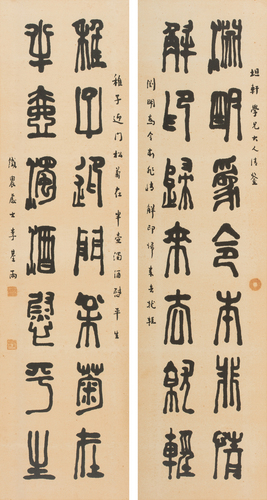 坦軒學兄大人清鑒
淵明為令本非情
解印歸來去就輕
淵明為令本非情 解印歸來去就輕
稚子迎門松菊在
半壺濁酒慰平生
稚子迎門松菊在 半壺濁酒慰平生